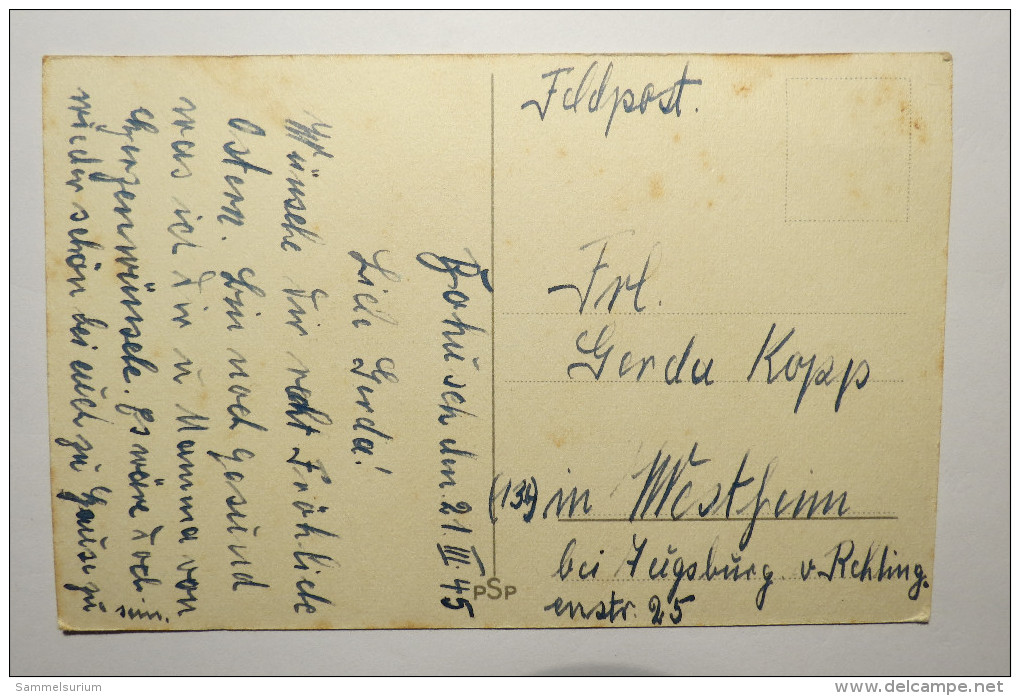 Feldpost.
Frl.
Gerda Kopp
(13b) in Westheim
bei Augsburg v. Rehling.
enstr. 25
PSP
den 21.III.45
Liebe Gerda!
Wünsche Dir recht Fröhliche
Ostern. Bin noch Gesund
was ich Dir u Mamma von
Herzen wünsche. Es wäre doch
wieder schön bei euch zu Hause zu
sein.
Sammelsurium
www.delcampe.net